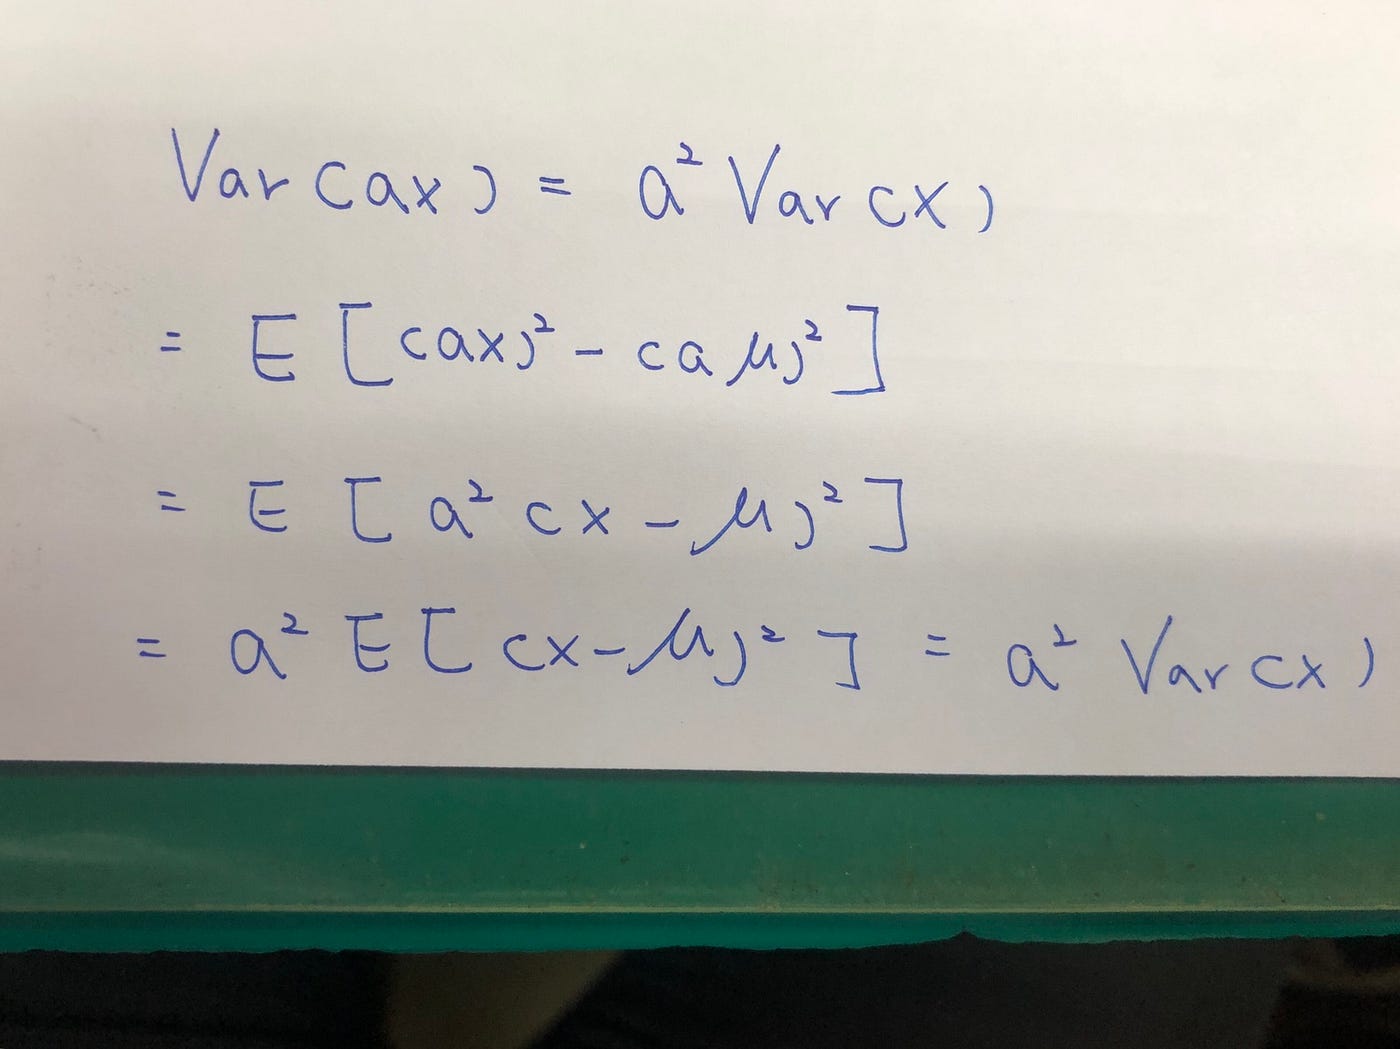 Var(ax) = a² Var(x)
= E [(ax)² - (aμ)²]
= E [a² (x - μ)²]
= a² E [(x - μ)²] = a² Var(x)